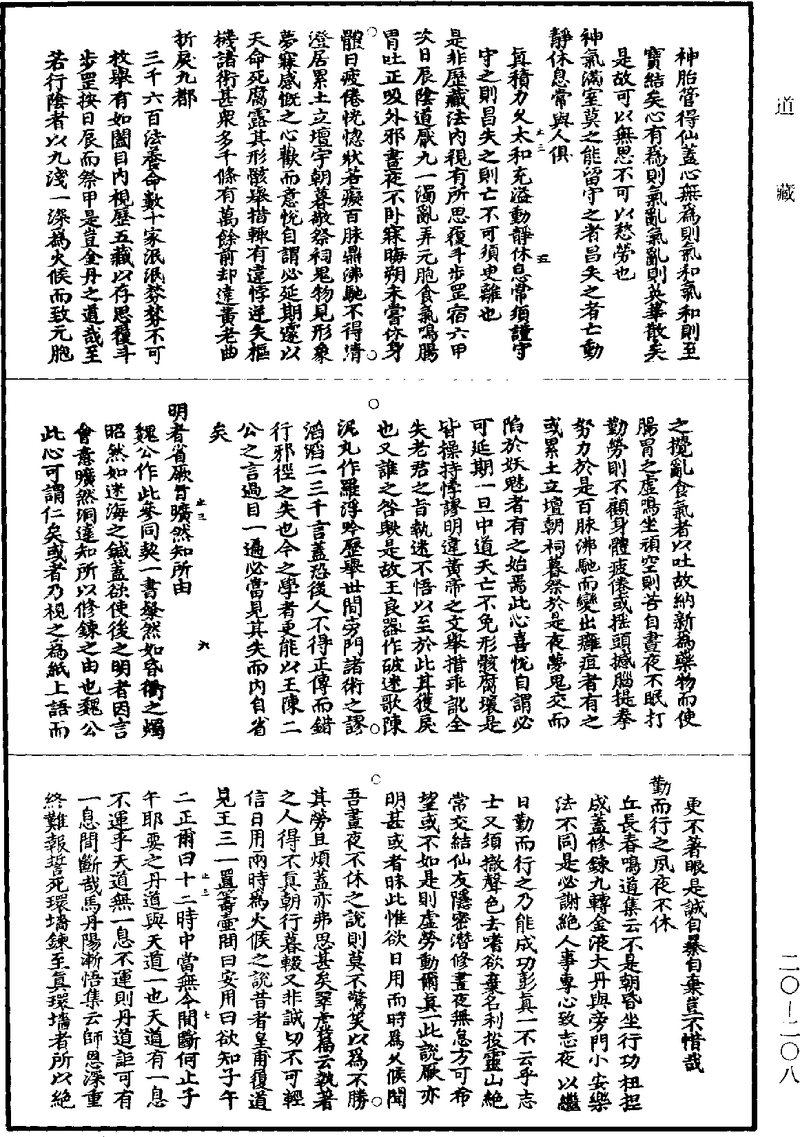 道藏
二〇—二〇八
神胎管得仙蓋心無為則氣和氣和則至
寶結矣心有為則氣亂氣亂則英華散矣
是故可以無思不可以愁勞也
神氣滿室莫之能留守之者昌失之者亡動
靜休息常與人俱
真積力久太和充溢動靜休息常須謹守
守之則昌失之則亡不可須臾離也
是非歷藏法內視有所思履斗步罡宿六甲
次日辰陰道厭九一濁亂弄元胞食氣鳴腸
胃吐正吸外邪晝夜不臥寐晦朔未嘗休身
體日疲倦恍惚狀若癡百脉鼎沸馳不得清
澄居累土立壇宇朝暮敬祭祠鬼物見形象
夢寐感慨之心歡而意悅自謂必延期遽以
夭命死腐露其形骸舉措輒有違悖逆失樞
機諸術甚衆多千條有萬餘前却違黃老曲
折戾九都
三千六百法養命數十家泯泯棼棼不可
枚舉有如閉目內視歷五藏以存思履斗
步罡按日辰而祭甲是豈金丹之道哉至
若行陰者以九淺一深為火候而致元胞
之攪亂食氣者以吐故納新為藥物而使
腸胃之虛鳴坐頑空則苦自晝夜不眠打
勤勞則不顧身體疲倦或搖頭撼腦提拳
努力於是百脉沸馳而變出癰疽者有之
或累土立壇朝祠暮祭於是夜夢鬼交而
陷於妖魅者有之始焉此心喜悅自謂必
可延期一旦中道夭亡不免形骸腐壞是
皆操持悖謬明違黃帝之文舉措乖訛全
失老君之旨執迷不悟以至於此其獲戾
也又誰之咎歟是故王良器作破迷歌陳
泥丸作羅浮吟歷舉世間旁門諸術之謬
滔滔二三千言蓋恐後人不得正傳而錯
行邪徑之失也今之學者更能以王陳二
公之言過目一遍必當見其失而內自省
矣
明者省厥旨曠然知所由
魏公作此參同契一書粲然如昏衢之燭
昭然如迷海之鍼蓋欲使後之明者因言
會意曠然洞達知所以修鍊之由也魏公
此心可謂仁矣或者乃視之為紙上語而
更不著眼是誠自暴自棄豈不惜哉
勤而行之夙夜不休
丘長春鳴道集云不是朝昏坐行功扭捏
成蓋修鍊九轉金液大丹與旁門小安樂
法不同是必謝絕人事專心致志夜以繼
日勤而行之乃能成功彭真一不云乎志
士又須撤聲色去嗜欲棄名利投靈山絕
常交結仙友隱密潛修晝夜無怠方可希
望或不如是則虛勞動爾真一此說厥亦
明甚或者昧此惟欲日用而時為火候聞
吾晝夜不休之說則莫不驚笑以為不勝
其勞且煩蓋亦弗思甚矣翠虛篇云執著
之人得不真朝行暮輟又非誠切不可輕
信日用兩時為火候之說昔者皇甫履道
見王三一置籌壺問曰安用曰欲知子午
二正爾曰十二時中當無令間斷何止子
午耶要之丹道與天道一也天道有一息
不運乎天道無一息不運則丹道詎可有
一息間斷哉馬丹陽漸悟集云師恩深重
終難報誓死環墻鍊至真環墻者所以絕